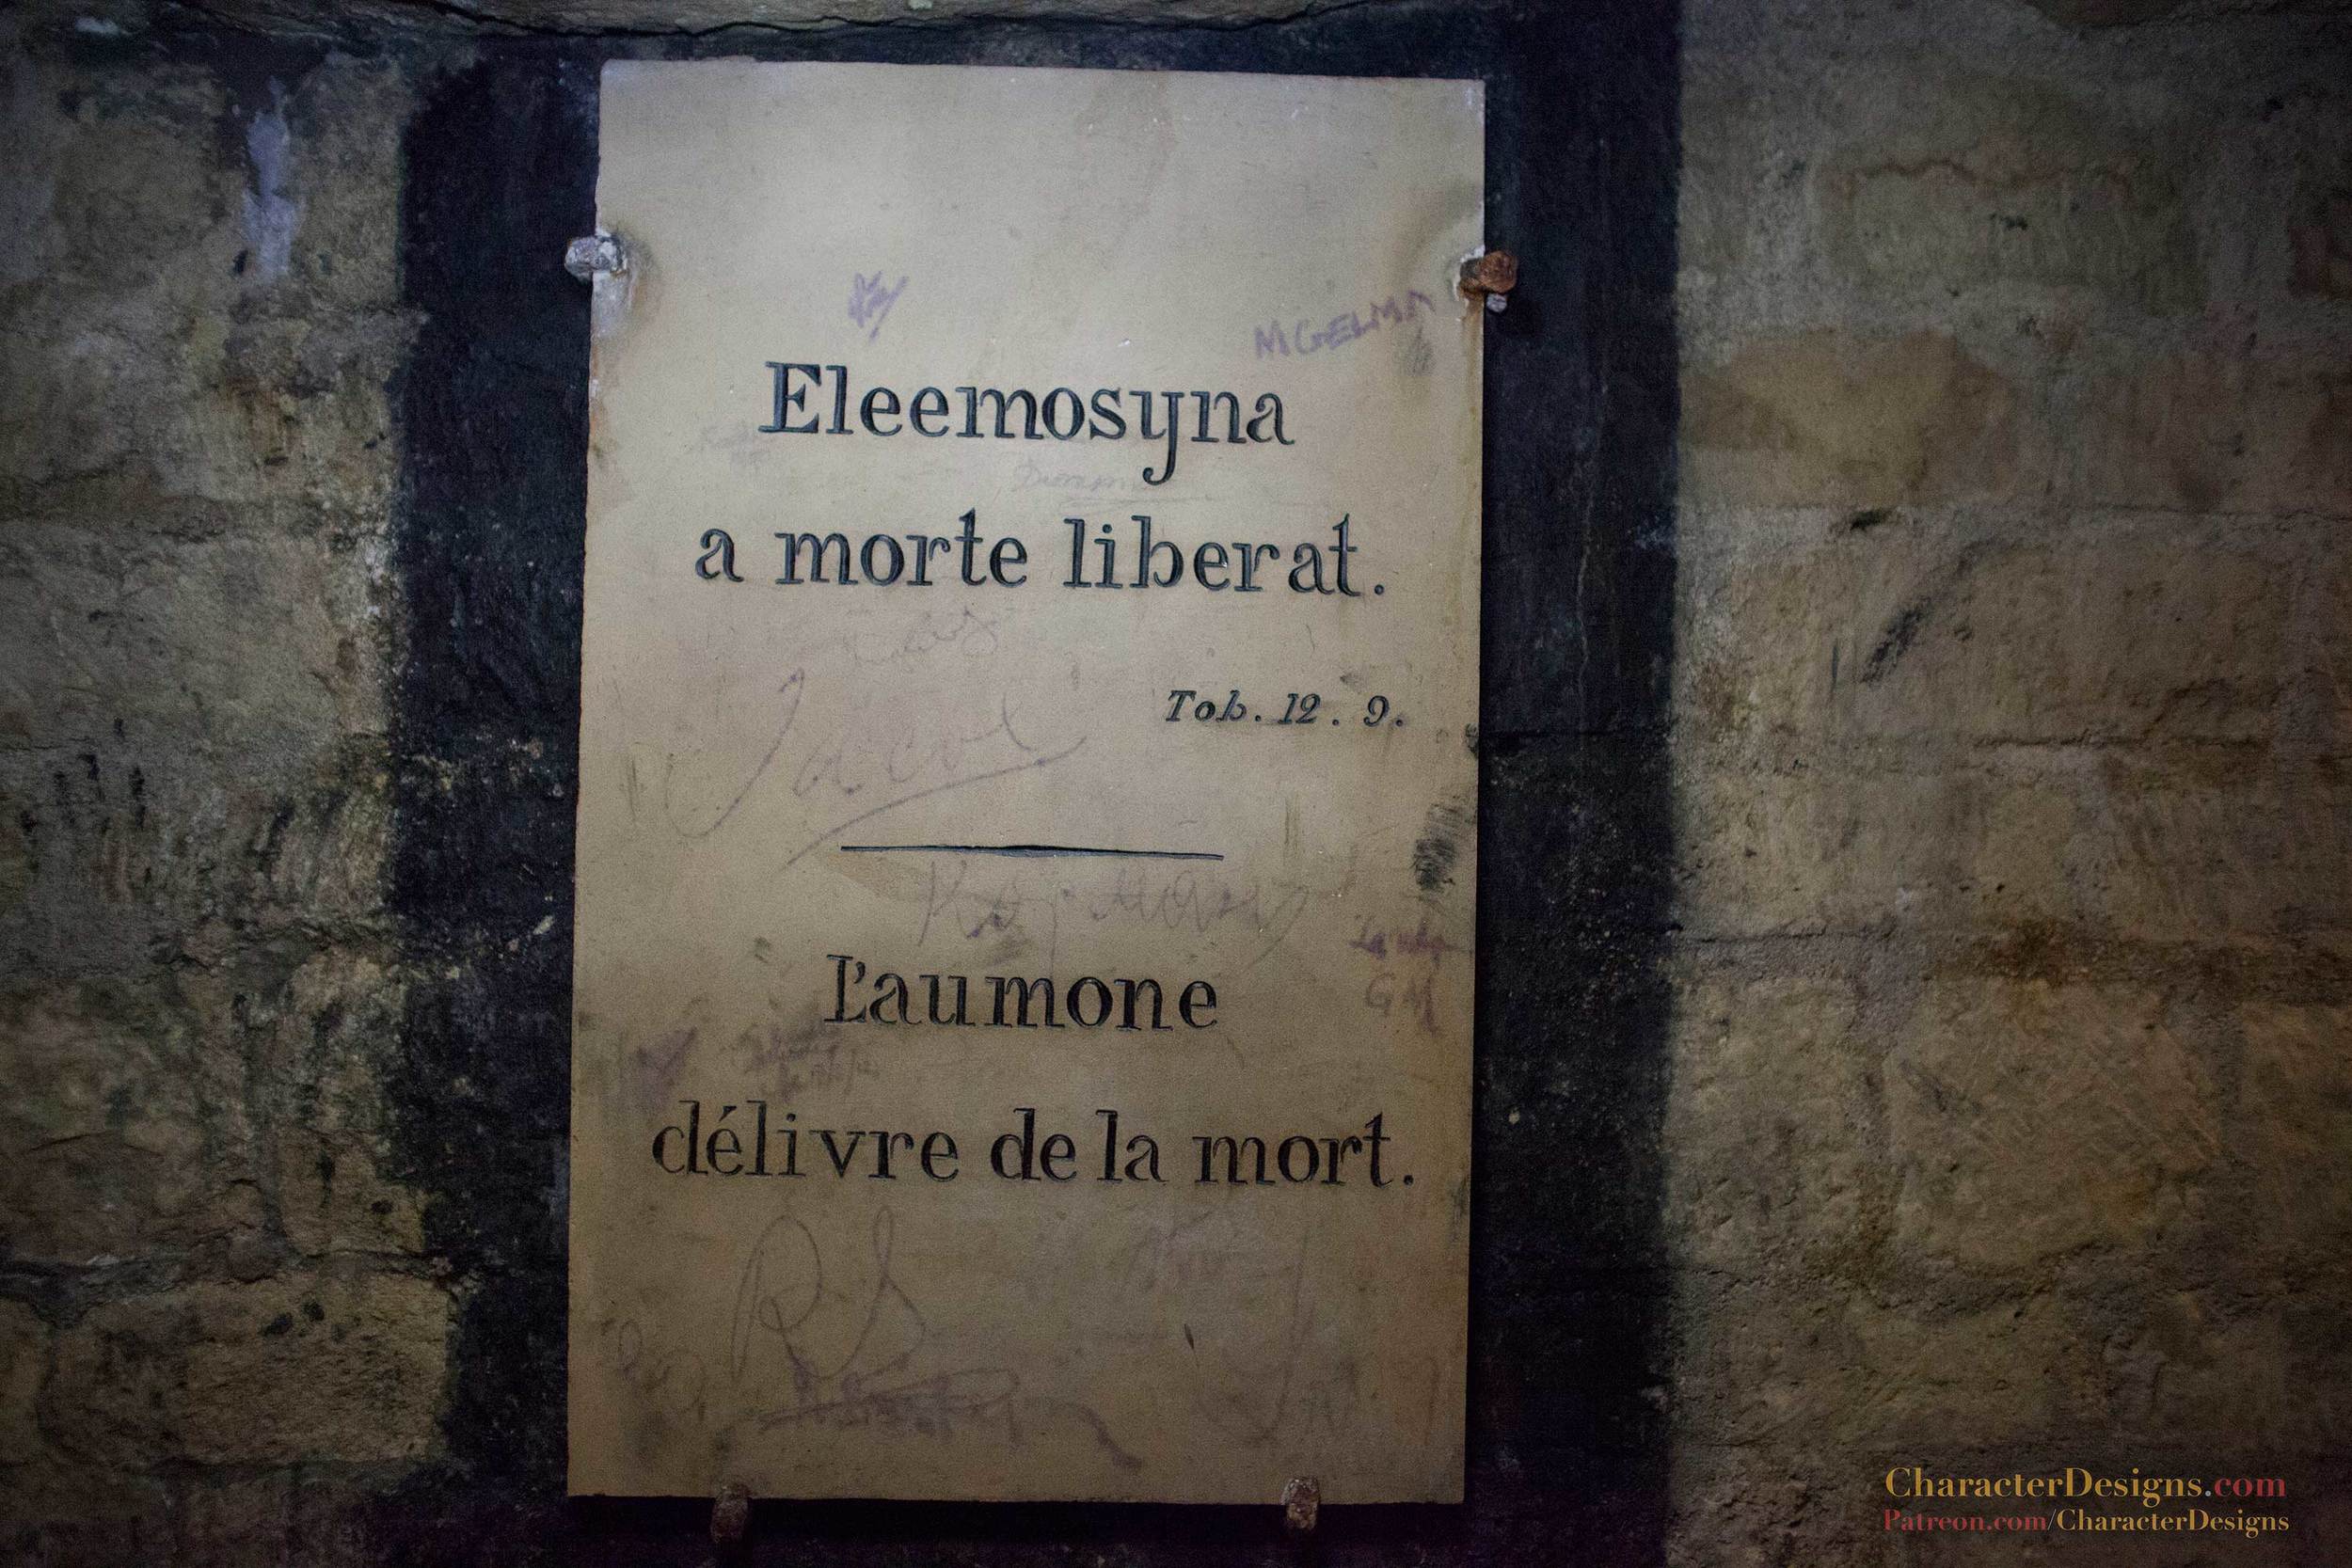 M GELMA
Eleemosyna
a morte liberat.
Tob. 12. 9.
L'aumone
délivre de la mort.
R S
CharacterDesigns.com
Patreon.com/CharacterDesigns